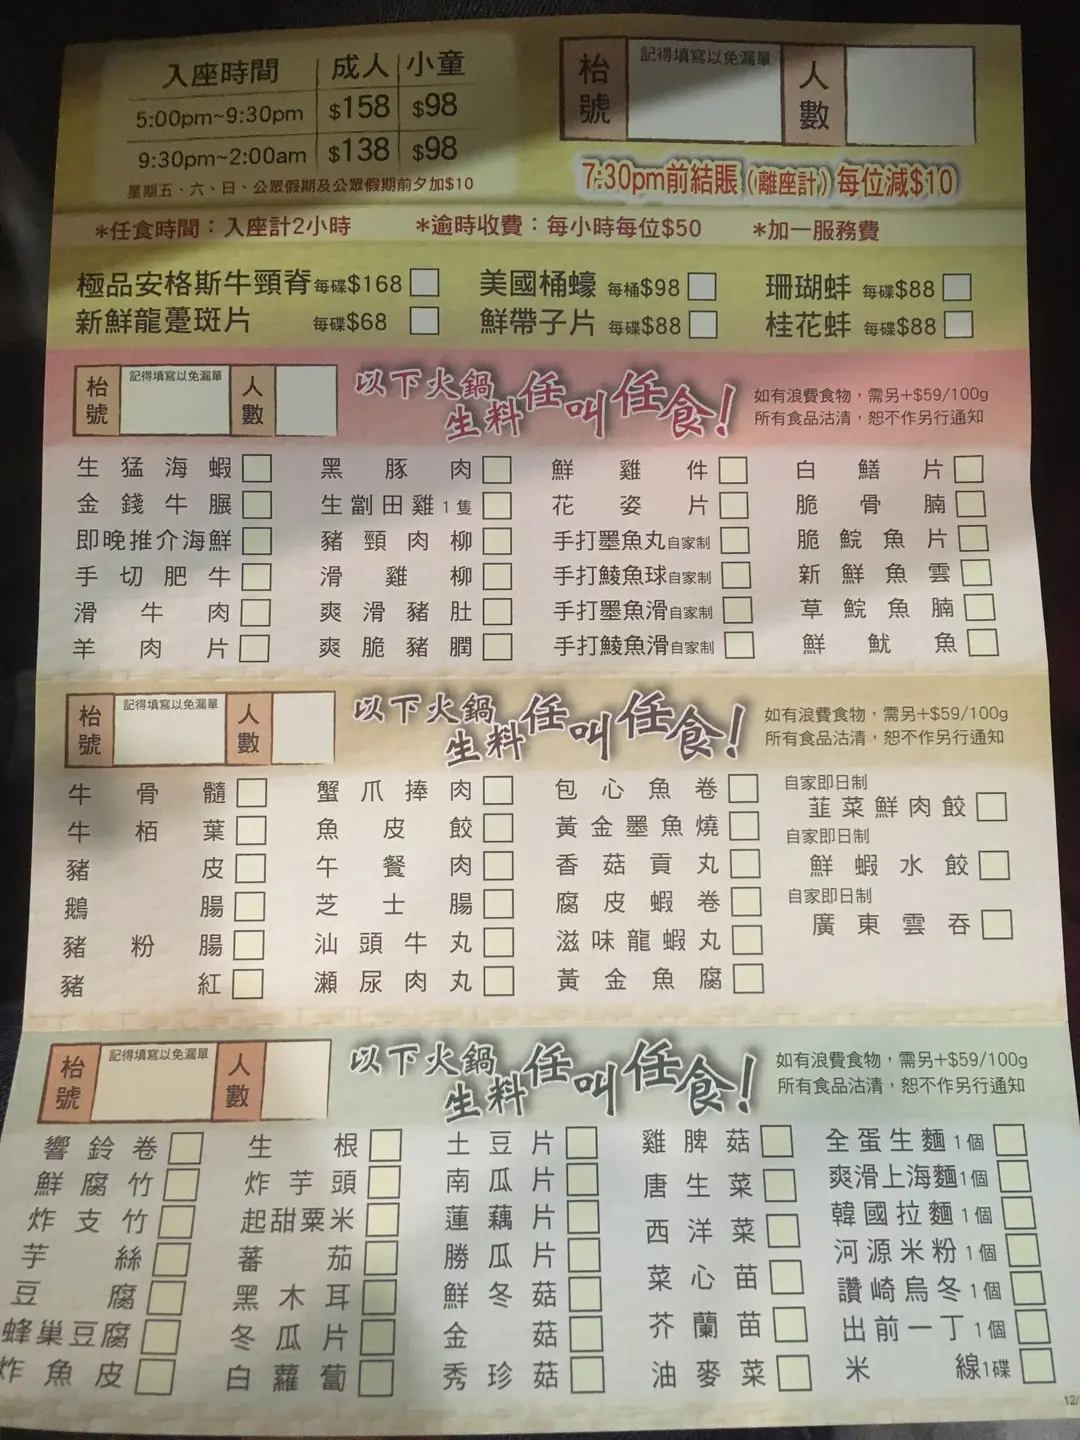 入座時間 成人 小童
5:00pm~9:30pm $158 $98
9:30pm~2:00am $138 $98
星期五、六、日、公眾假期及公眾假期前夕加$10
枱號 記得填寫以免漏單 人數
7:30pm前結賬(離座計) 每位減$10
*任食時間：入座計2小時 *逾時收費：每小時每位$50 *加一服務費
極品安格斯牛頸脊 每碟$168 美國桶蠔 每桶$98 珊瑚蚌 每碟$88
新鮮龍躉斑片 每碟$68 鮮帶子片 每碟$88 桂花蚌 每碟$88
枱號 記得填寫以免漏單 人數
以下火鍋生料任叫任食！
如有浪費食物，需另+$59/100g
所有食品沽清，恕不作另行通知
生猛海蝦 黑豚肉 鮮雞件 白鱔片
金錢牛𦟌 生劏田雞1隻 花姿片 脆骨腩
即晚推介海鮮 豬頸肉柳 手打墨魚丸自家制 脆鯇魚片
手切肥牛 滑雞柳 手打鯪魚球自家制 新鮮魚雲
滑牛肉 爽滑豬肚 手打墨魚滑自家制 草鯇魚腩
羊肉片 爽脆豬膶 手打鯪魚滑自家制 鮮魷魚
枱號 記得填寫以免漏單 人數
以下火鍋生料任叫任食！
如有浪費食物，需另+$59/100g
所有食品沽清，恕不作另行通知
牛骨髓 蟹爪捧肉 包心魚卷 自家即日制 韮菜鮮肉餃
牛栢葉 魚皮餃 黃金墨魚燒 自家即日制
豬皮 午餐肉 香菇貢丸 鮮蝦水餃
鵝腸 芝士腸 腐皮蝦卷 自家即日制
豬粉腸 汕頭牛丸 滋味龍蝦丸 廣東雲吞
豬紅 瀨尿肉丸 黃金魚腐
枱號 記得填寫以免漏單 人數
以下火鍋生料任叫任食！
如有浪費食物，需另+$59/100g
所有食品沽清，恕不作另行通知
響鈴卷 生根 土豆片 雞脾菇 全蛋生麵1個
鮮腐竹 炸芋頭 南瓜片 唐生菜 爽滑上海麵1個
炸支竹 起甜粟米 蓮藕片 西洋菜 韓國拉麵1個
芋絲 蕃茄 勝瓜片 菜心苗 河源米粉1個
豆腐 黑木耳 鮮冬菇 芥蘭苗 讚崎烏冬1個
蜂巢豆腐 冬瓜片 金菇 油麥菜 出前一丁1個
炸魚皮 白蘿蔔 秀珍菇 米線1碟
12/